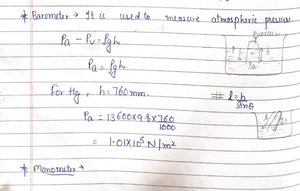 * Barometer → It is used to measure atmospheric pressure.
Pa - Pv = ρgh
Pa = ρgh
For Hg, h = 760mm.
# l = h/sinθ
Pa = 13600×9.8×760/1000
= 1.01×10⁵ N/m²
* Manometer →